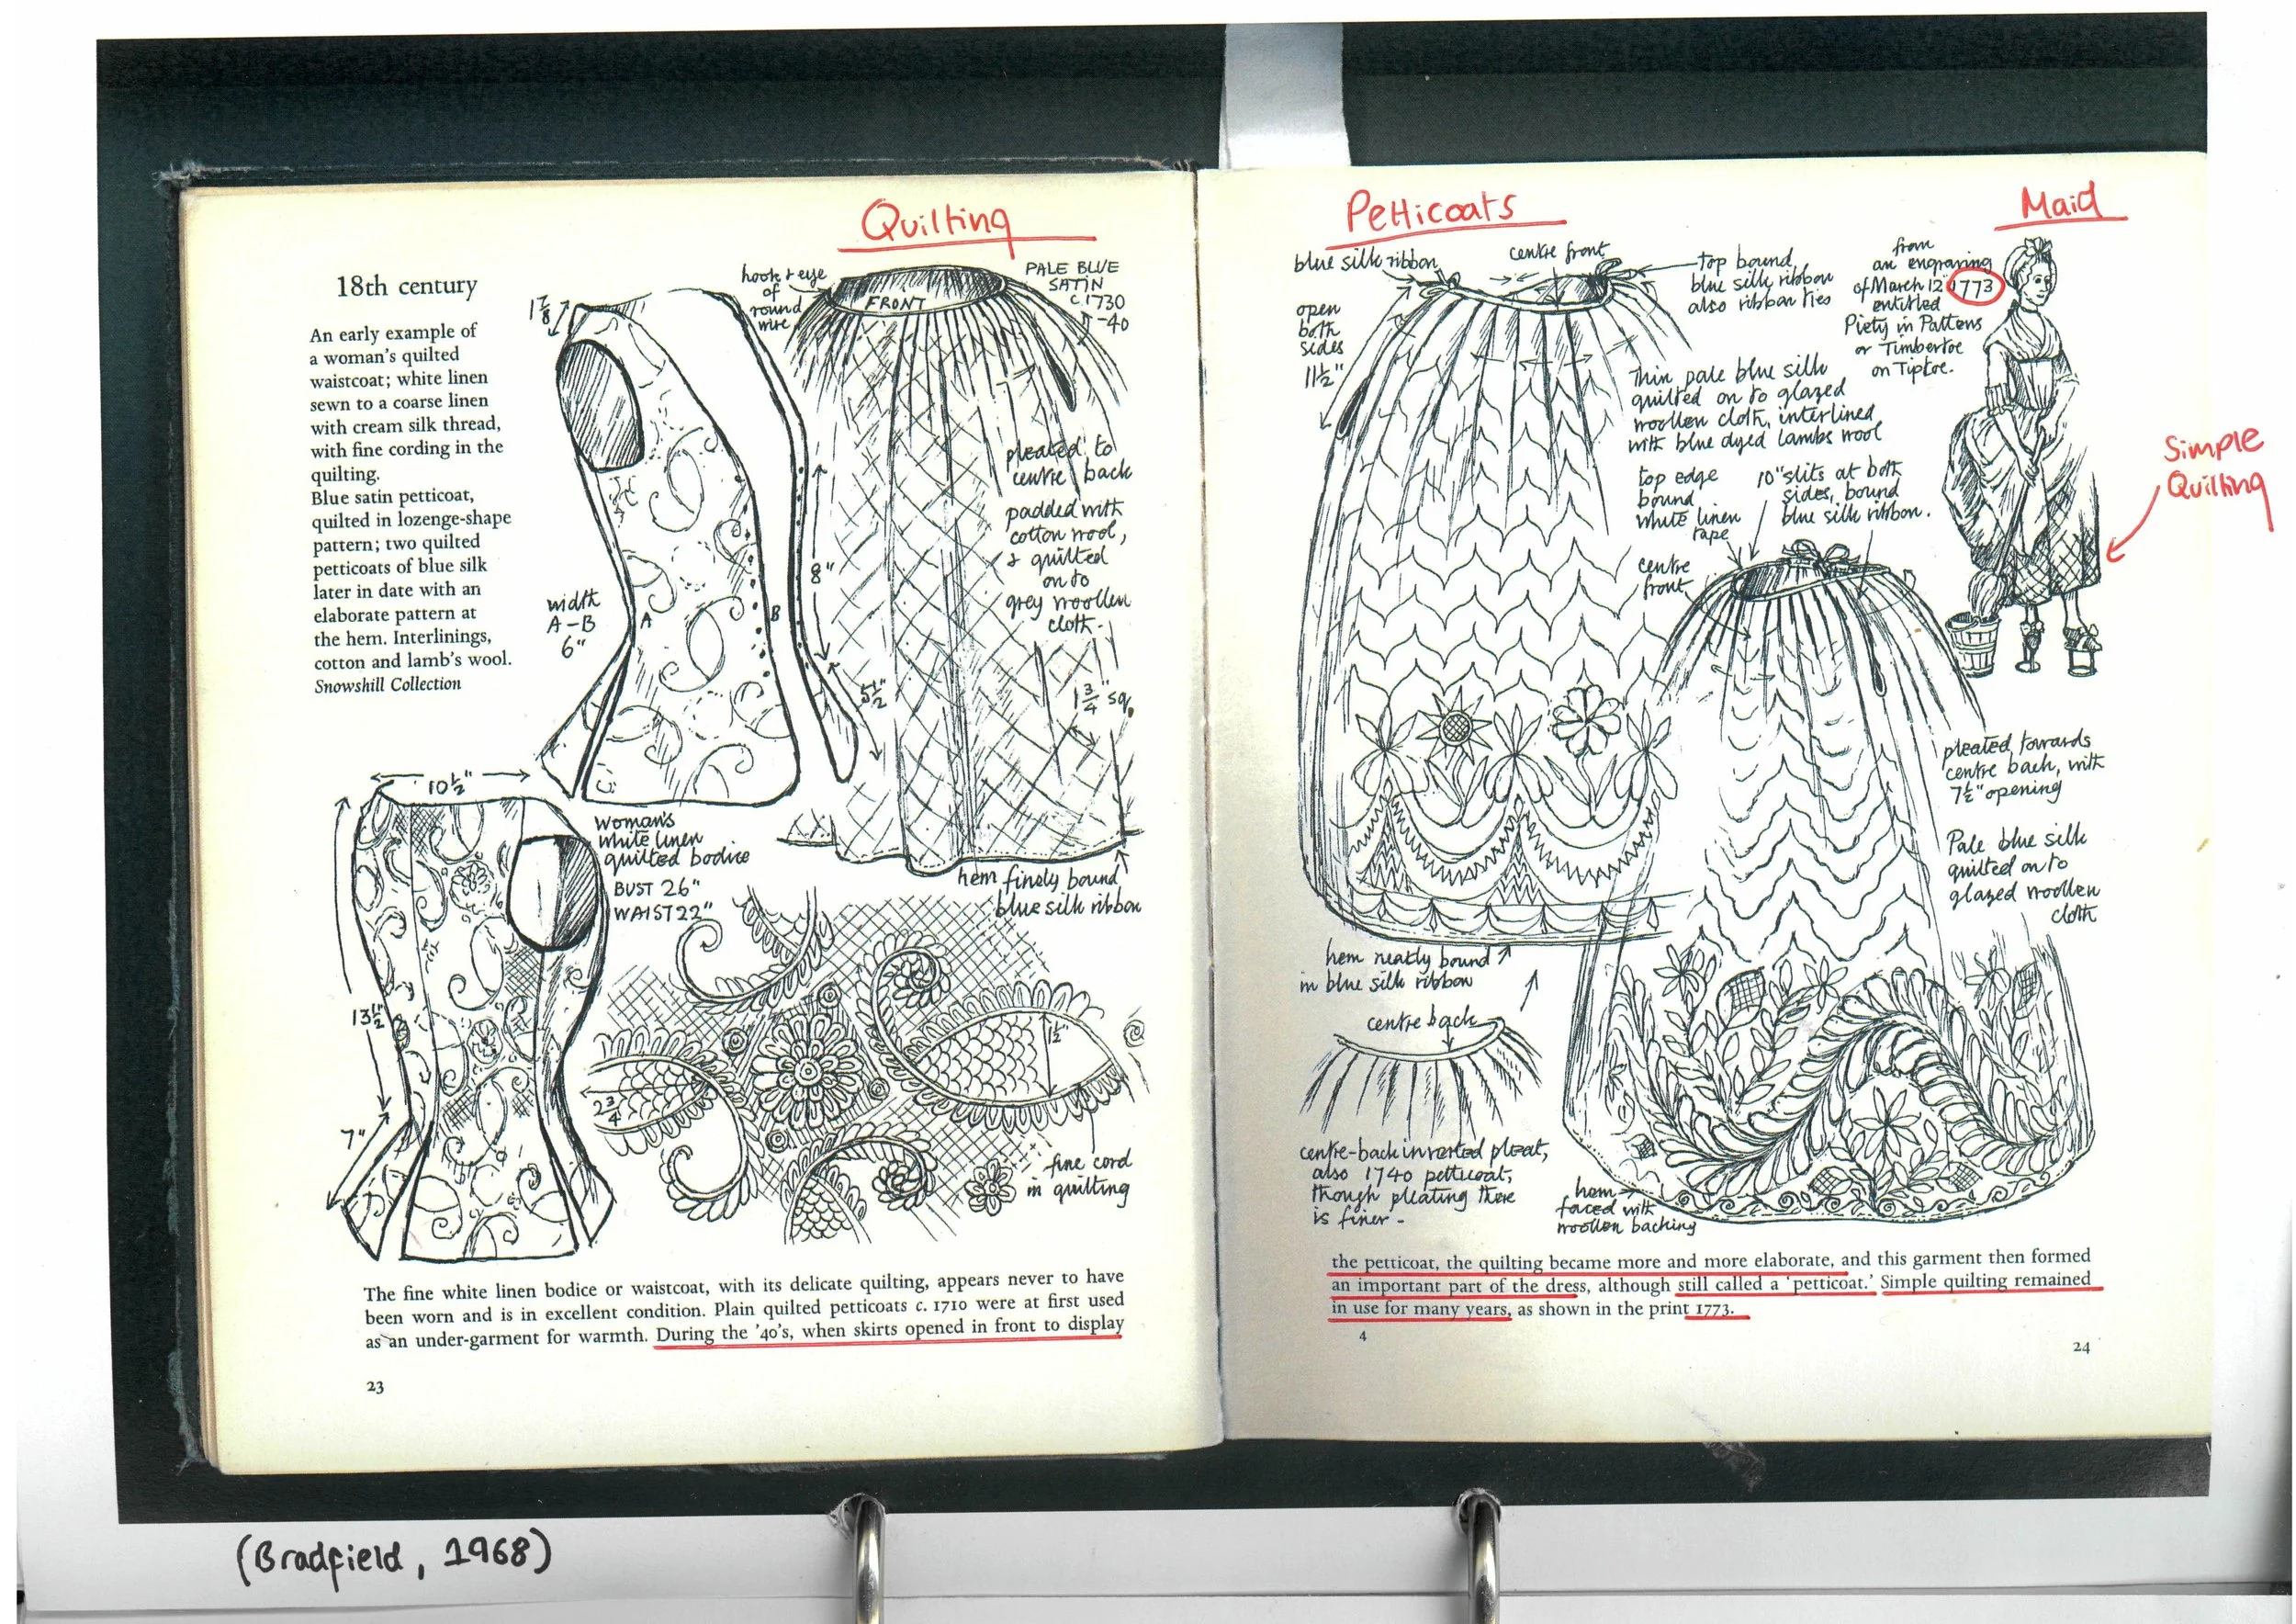 Quilting
18th century
An early example of
a woman's quilted
waistcoat; white linen
sewn to a coarse linen
with cream silk thread,
with fine cording in the
quilting.
Blue satin petticoat,
quilted in lozenge-shape
pattern; two quilted
petticoats of blue silk
later in date with an
elaborate pattern at
the hem. Interlinings,
cotton and lamb's wool.
Snowshill Collection
1 7/8
hook & eye
of
round
wire.
FRONT
PALE BLUE
SATIN
c.1730
-40
pleated to
centre back
padded with
cotton wool,
& quilted
on to
grey woollen
cloth.
8"
width
A-B
6"
A
B
5 1/2"
1 3/4" sq.
hem finely bound
blue silk ribbon
10 1/2"
Woman's
white linen
quilted bodice
BUST 26"
WAIST 22"
13 1/2"
7"
2 3/4
1 1/2"
fine cord
in quilting
The fine white linen bodice or waistcoat, with its delicate quilting, appears never to have
been worn and is in excellent condition. Plain quilted petticoats c. 1710 were at first used
as an under-garment for warmth. During the '40's, when skirts opened in front to display
23
Petticoats
Maid
blue silk ribbon
centre front
top bound
blue silk ribbon
also ribbon ties
from
an engraving
of March 12 1773
entitled
Piety in Pattens
or Timbertoe
on Tiptoe.
open
both
sides
11 1/2"
Thin pale blue silk
quilted on to glazed
woollen cloth, interlined
with blue dyed lambs wool
Simple
Quilting
top edge
bound
white linen
tape
10" slits at both
sides, bound
blue silk ribbon.
centre
front
pleated towards
centre back, with
7 1/2" opening
Pale blue silk
quilted on to
glazed woollen
cloth
hem neatly bound
in blue silk ribbon
centre back
centre-back inverted pleat,
also 1740 petticoat,
though pleating there
is finer -
hem
faced with
woollen backing
the petticoat, the quilting became more and more elaborate, and this garment then formed
an important part of the dress, although still called a 'petticoat.' Simple quilting remained
in use for many years, as shown in the print 1773.
4
24
(Bradfield, 1968)